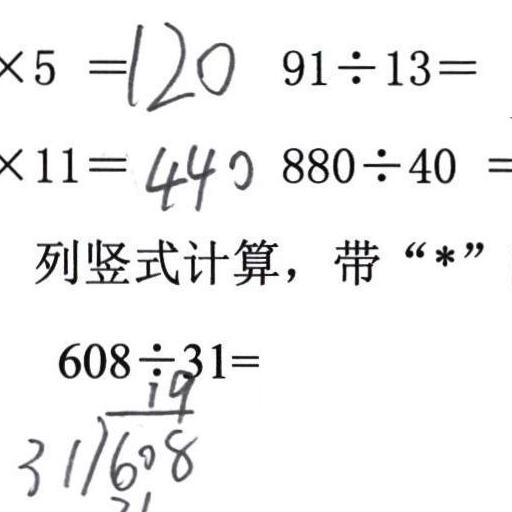 ×5 =120 91÷13=
×11=440 880÷40 =
列竖式计算，带“*”
608÷31=
19
31)608
31